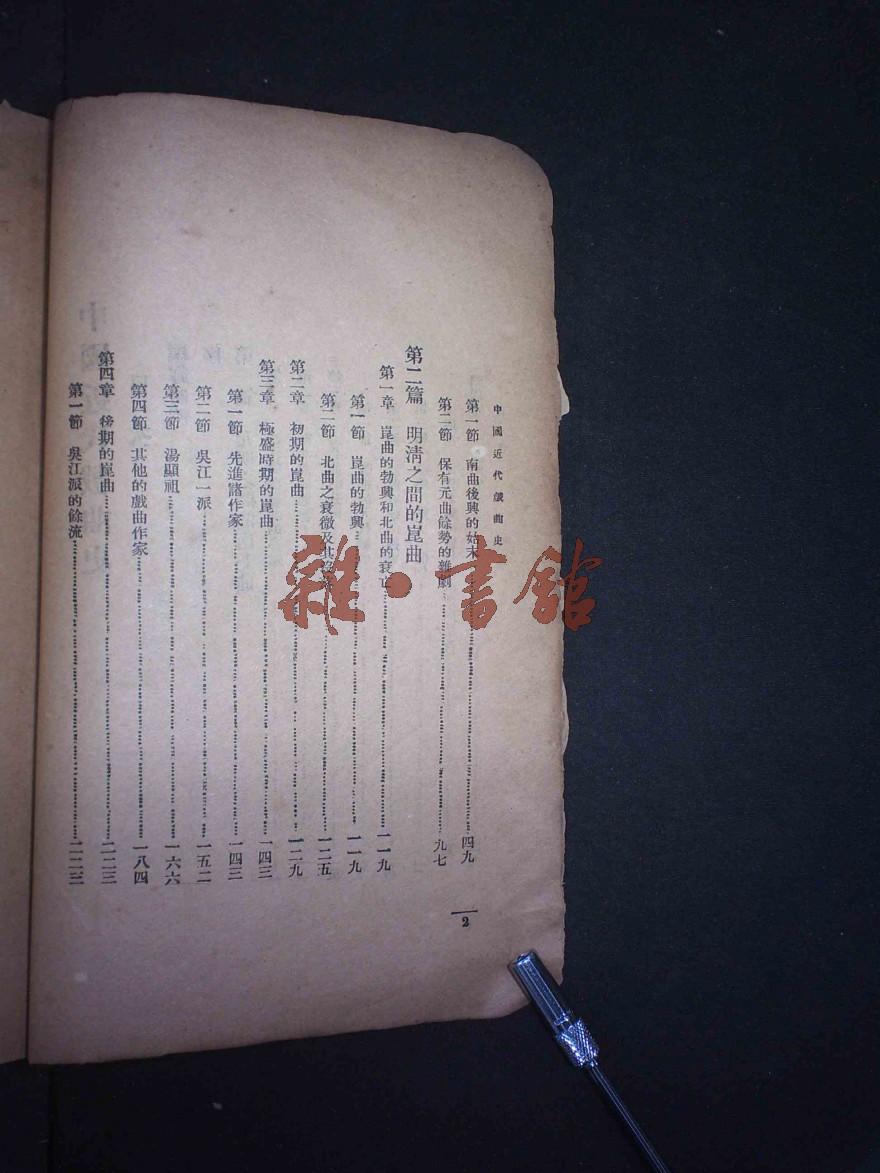 中國近代戲曲史
第一節 南曲後興的始末 四九
第二節 保有元曲餘勢的雜劇 九七
第二篇 明清之間的崑曲
第一章 崑曲的勃興和北曲的衰亡 一一九
第一節 崑曲的勃興 一一九
第二節 北曲之衰微及其 一二五
第二章 初期的崑曲 一二九
第三章 極盛時期的崑曲 一四三
第一節 先進諸作家 一四三
第二節 吳江一派 一五二
第三節 湯顯祖 一六六
第四節 其他的戲曲作家 一八四
第四章 後期的崑曲 二二三
第一節 吳江派的餘流 二二三
2
雜·書館